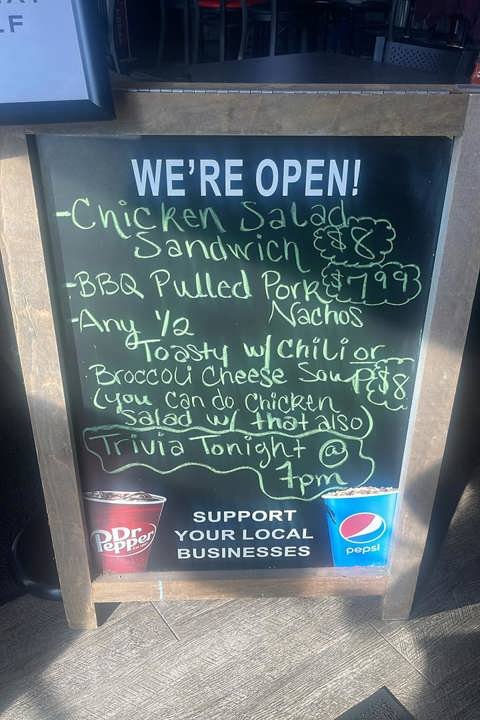 LF
WE'RE OPEN!
-Chicken Salad
Sandwich $8
-BBQ Pulled Pork $7.99
Nachos
-Any 1/2
Toasty w/ chili or
Broccoli Cheese Soup $8
(you can do chicken
salad w/ that also)
Trivia Tonight @
7pm
SUPPORT
YOUR LOCAL
BUSINESSES
Dr Pepper
pepsi